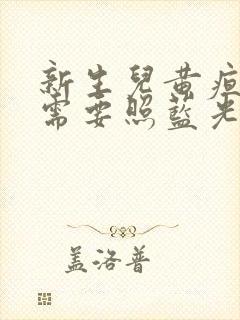 新生兒黃疸
需要照藍光
盖洛普